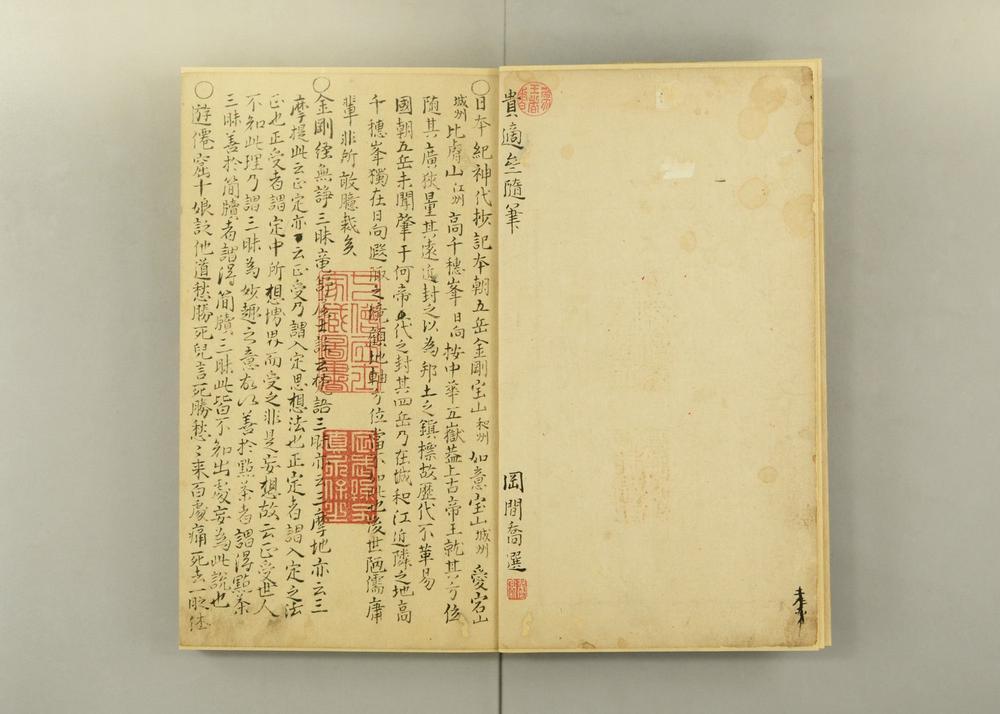 貴適𠀋隨筆
岡間喬選
○日本紀神代抄記本朝五岳金剛宝山和州如意宝山城州愛宕山
城州比叡山江州高千穗峯日向按中華五嶽蓋上古帝王就其方位
隨其廣狹量其遠近封之以為邦土之鎮標故歷代不革易
國朝五岳未聞肇于何帝代之封其四岳乃在城和江近隣之地高
千穗峯獨在日向遐陬之境顧地軸方位當不如此也後世陋儒庸
輩非所敢臆裁矣
○金剛經無諍三昧 三昧亦云三摩地亦云三
摩提此云正定亦云正受乃謂入定思想法也正定者謂入定之法
正也正受者謂定中所想境界而受之非是妄想故云正受世人
不知此理乃謂三昧為妙趣之意故以善於點茶者謂得點茶
三昧善於簡牘者謂得簡牘三昧此皆不知出處妄為此說也
○遊僊窟十娘詠他道愁勝死兒言死勝愁〻来百處痛死去一